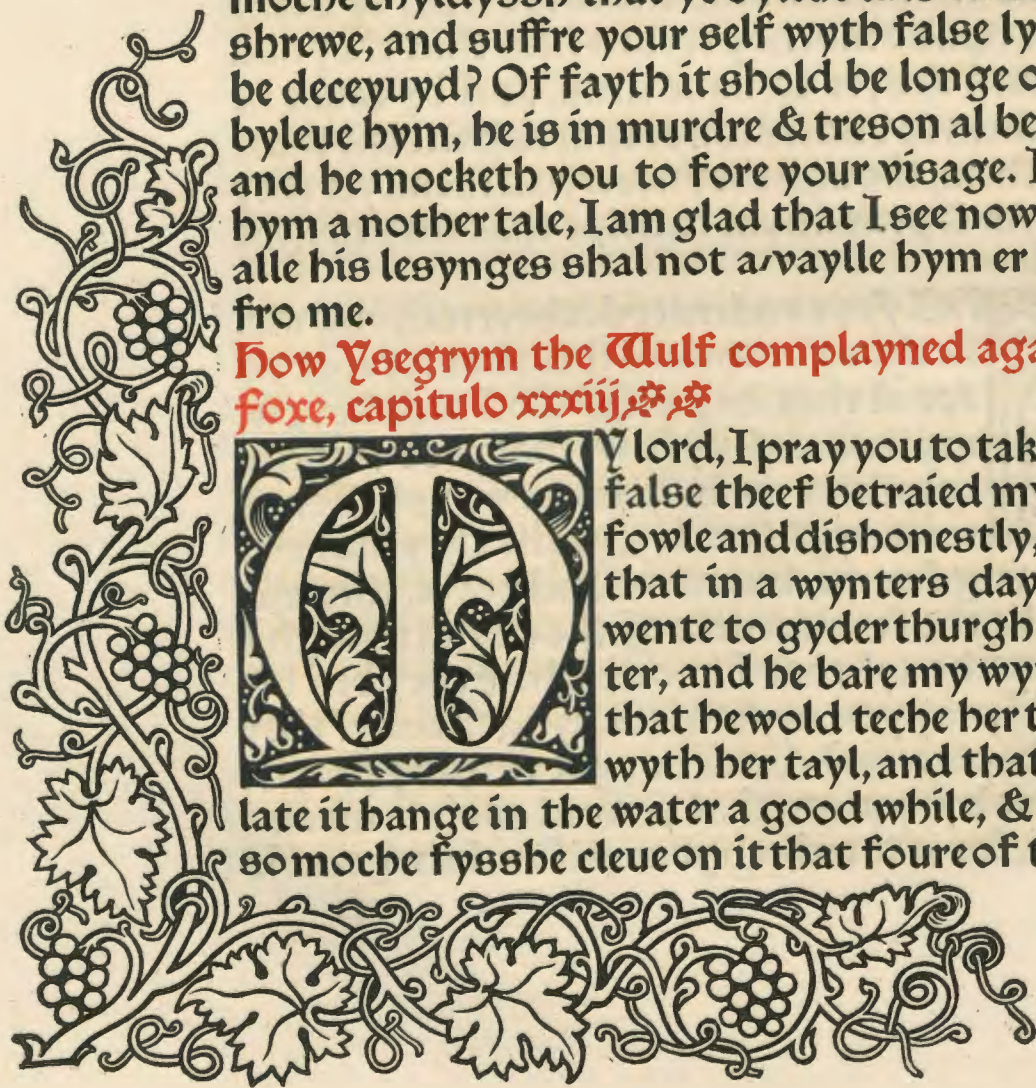 moche chyldyssh that ye byleue
shrewe, and suffre your self wyth false ly
be deceyuyd? Of fayth it shold be longe
byleue hym, he is in murdre & treson al be
and he mocketh you to fore your visage.
hym a nother tale, I am glad that I see now
alle his lesynges shal not a/vaylle hym er
fro me.
How Ysegrym the Wulf complayned aga
foxe, capitulo xxxiij
My lord, I pray you to tak
false theef betraied my
fowle and dishonestly,
that in a wynters day
wente to gyder thurgh
ter, and he bare my wy
that he wold teche her t
wyth her tayl, and that
late it hange in the water a good while, &
so moche fysshe cleue on it that foure of t